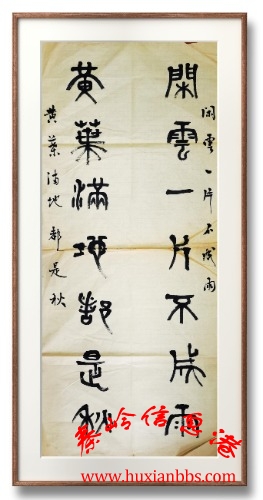 閑雲一片不成雨
闲雲一片不成雨
黄葉滿地都是秋
黄葉满地都是秋
秦岭信通港
www.huxianbbs.com